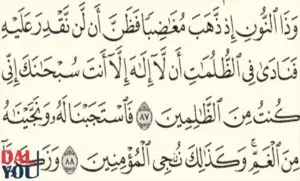 وَذَا النُّونِ إِذ ذَّهَبَ مُغَٰضِبًا فَظَنَّ أَن لَّن نَّقْدِرَ عَلَيْهِ
فَنَادَىٰ فِى الظُّلُمَٰتِ أَن لَّا إِلَٰهَ إِلَّا أَنتَ سُبْحَٰنَكَ إِنِّى
كُنتُ مِنَ الظَّٰلِمِينَ ٨٧ فَاسْتَجَبْنَا لَهُۥ وَنَجَّيْنَٰهُ
مِنَ الْغَمِّ ۚ وَكَذَٰلِكَ نُـۨجِى الْمُؤْمِنِينَ ٨٨
DAL
YOU